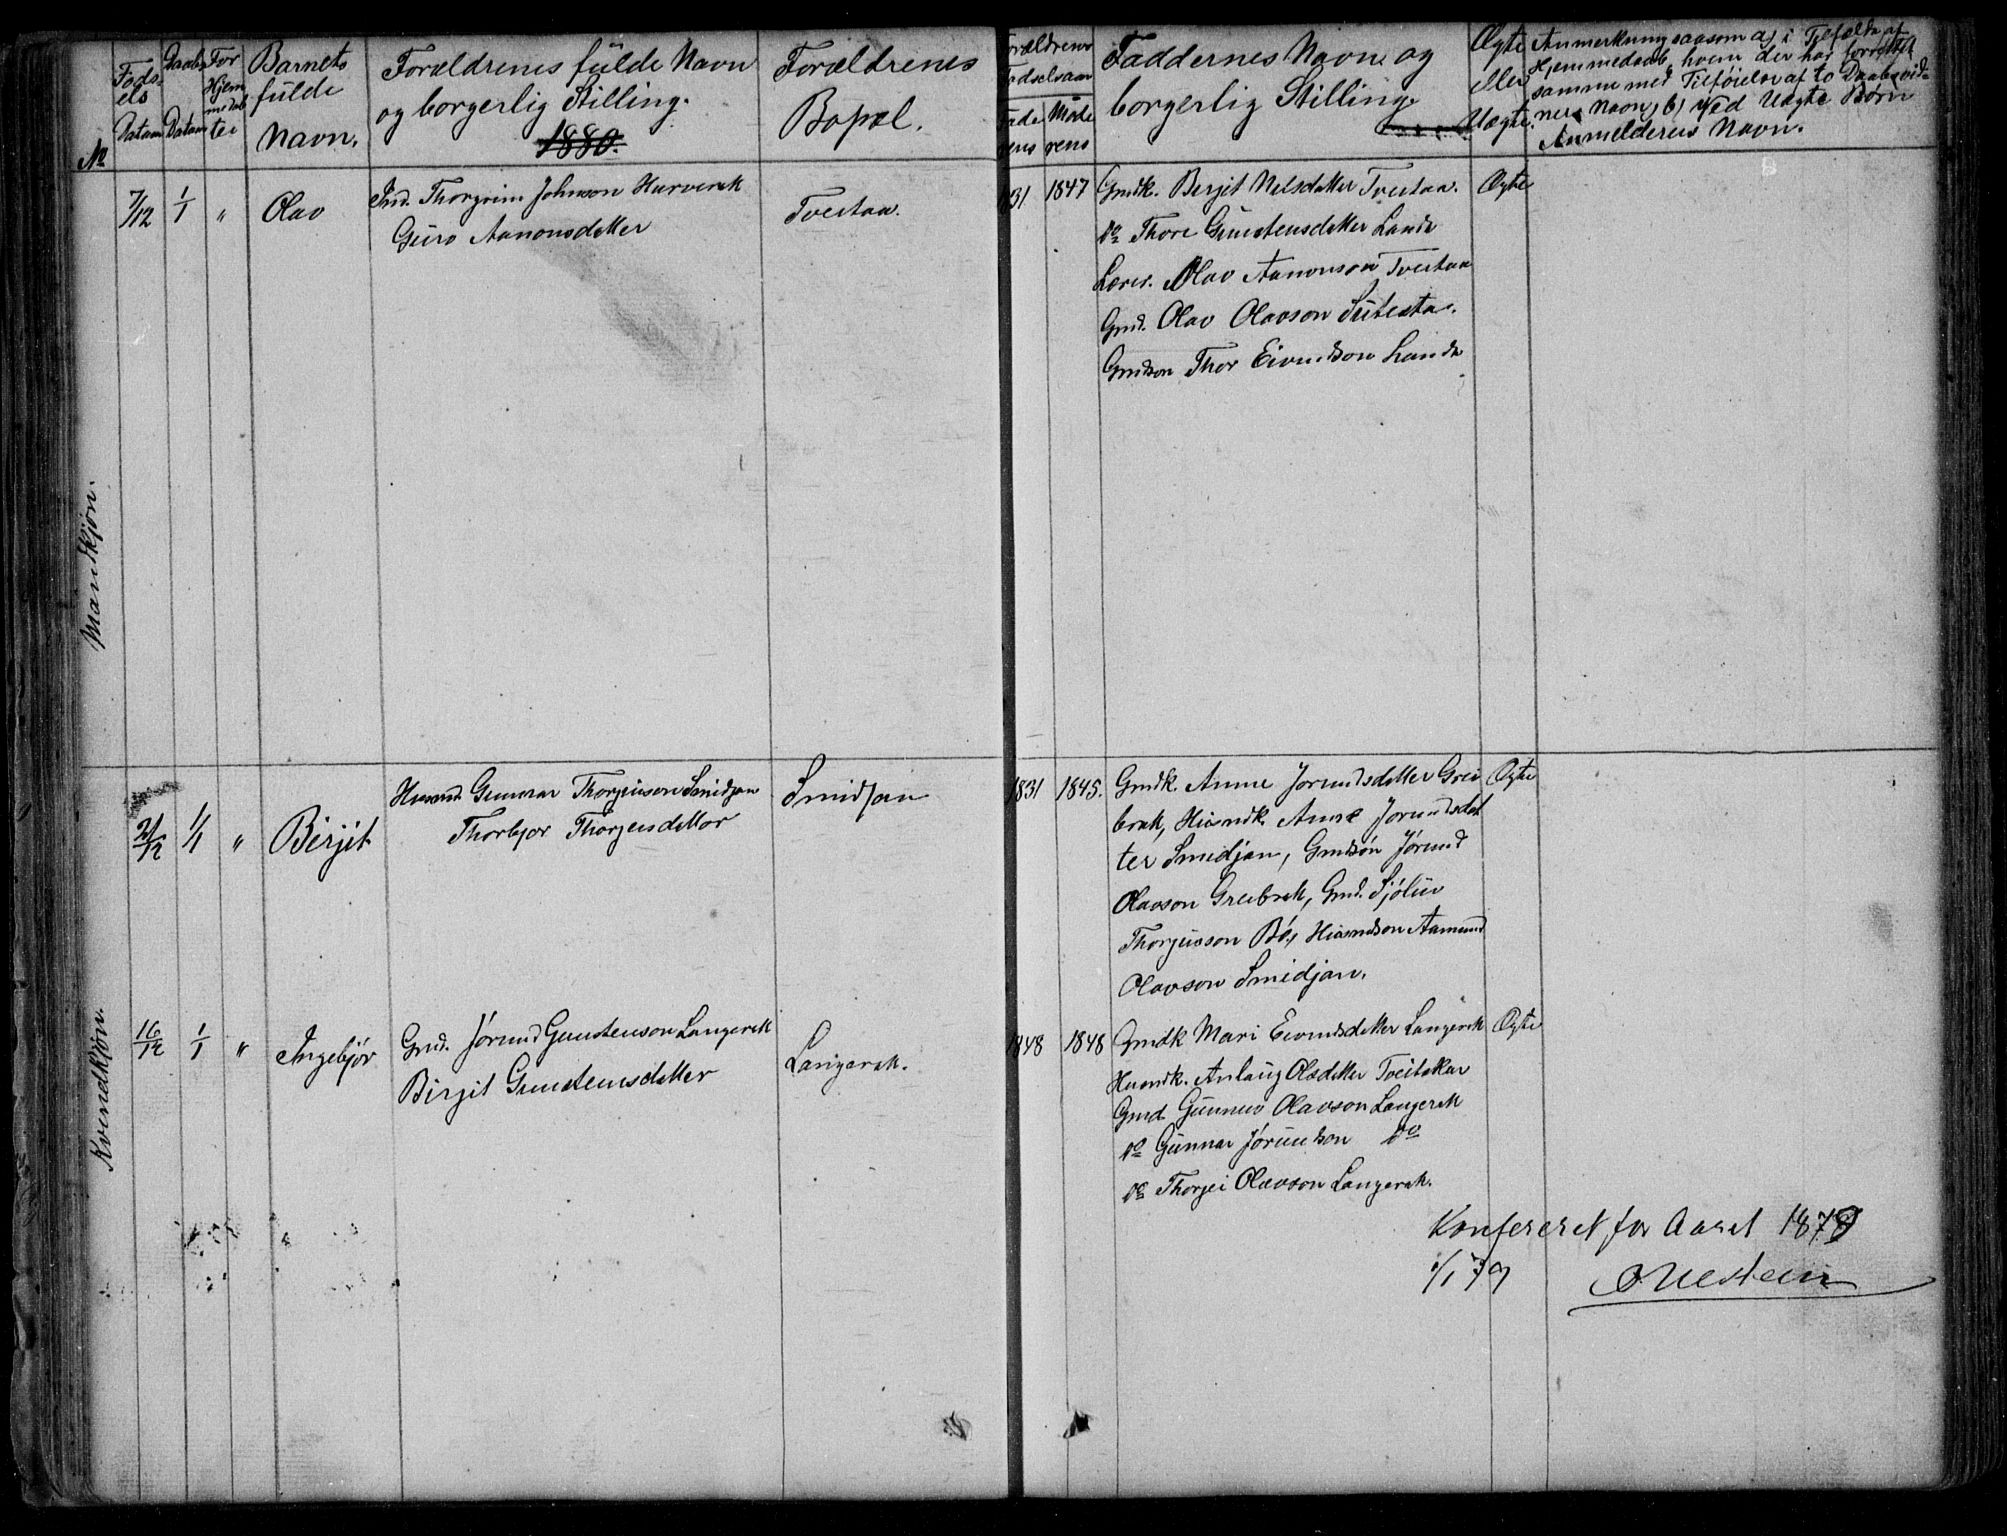 No
Føds-
els
Datum
Daabs
Datum
For
Hjem
medøb
ter
Barnets
fulde
Navn.
Forældrenes fülde Navn
og borgerlig Stilling.
1880.
Forældrenes
Bopæl.
Forældrenes
Fødselsaar
Fade
rens
Mode
rens
Faddernes Navne og
borgerlig Stilling.
Ægte
eller
Uægte.
Anmerkning saasom a) i Tilfælde af
Hjemmedaab, hvem der har forrettet
samme med Tilføielse af to Daabsvid-
ners Navn, b) ved Uægte Børn
Anmelderens Navn.
Mandkjøn.
7/12 1/1 " Olav
Ind. Thorgrim Johnson Hurverak
Guro Aanonsdatter
Tveitaa.
31 1847
Gmdk. Berjit Nelsdatter Tveitaa.
do Thore Gunstensdatter Lande
Lærer. Olav Aanonson Tveitaa
Gmd. Olav Olavson
Gmdson Thor Eivindson Lande
Ægte
Kvendkjøn.
21/12 1/1 " Berjit
Husmd. Gunnar Thorjusson Smidjan
Thorbjør Thorjusdatter
Smidjan
1831 1845.
Gmdk. Anne Jorundsdatter Grei
brok, Husmdk. Anne Jorundsdat
ter Smidjan, Gmdsøn Jørund
Olavson Greibrok, Gmd. Sjølur
Thorjusson Bø, Husmdson Aamund
Olavson Smidjan.
Ægte
16/12 1/1 " Ingebjør
Gmd. Jørund Gunstenson Langerak
Birgit Gunstensdatter
Langerak.
1848 1848
Gmdk Mari Eivindsdatter Langerak
Husmdk. Anlaug Olsdatter Tveitakar
Gmd Gunnuv Olavson Langerak
do Gunnar Jørundson do
do Thorjei Olavson Langerak.
Ægte
Konfereret for Aaret 1878
1/1 79